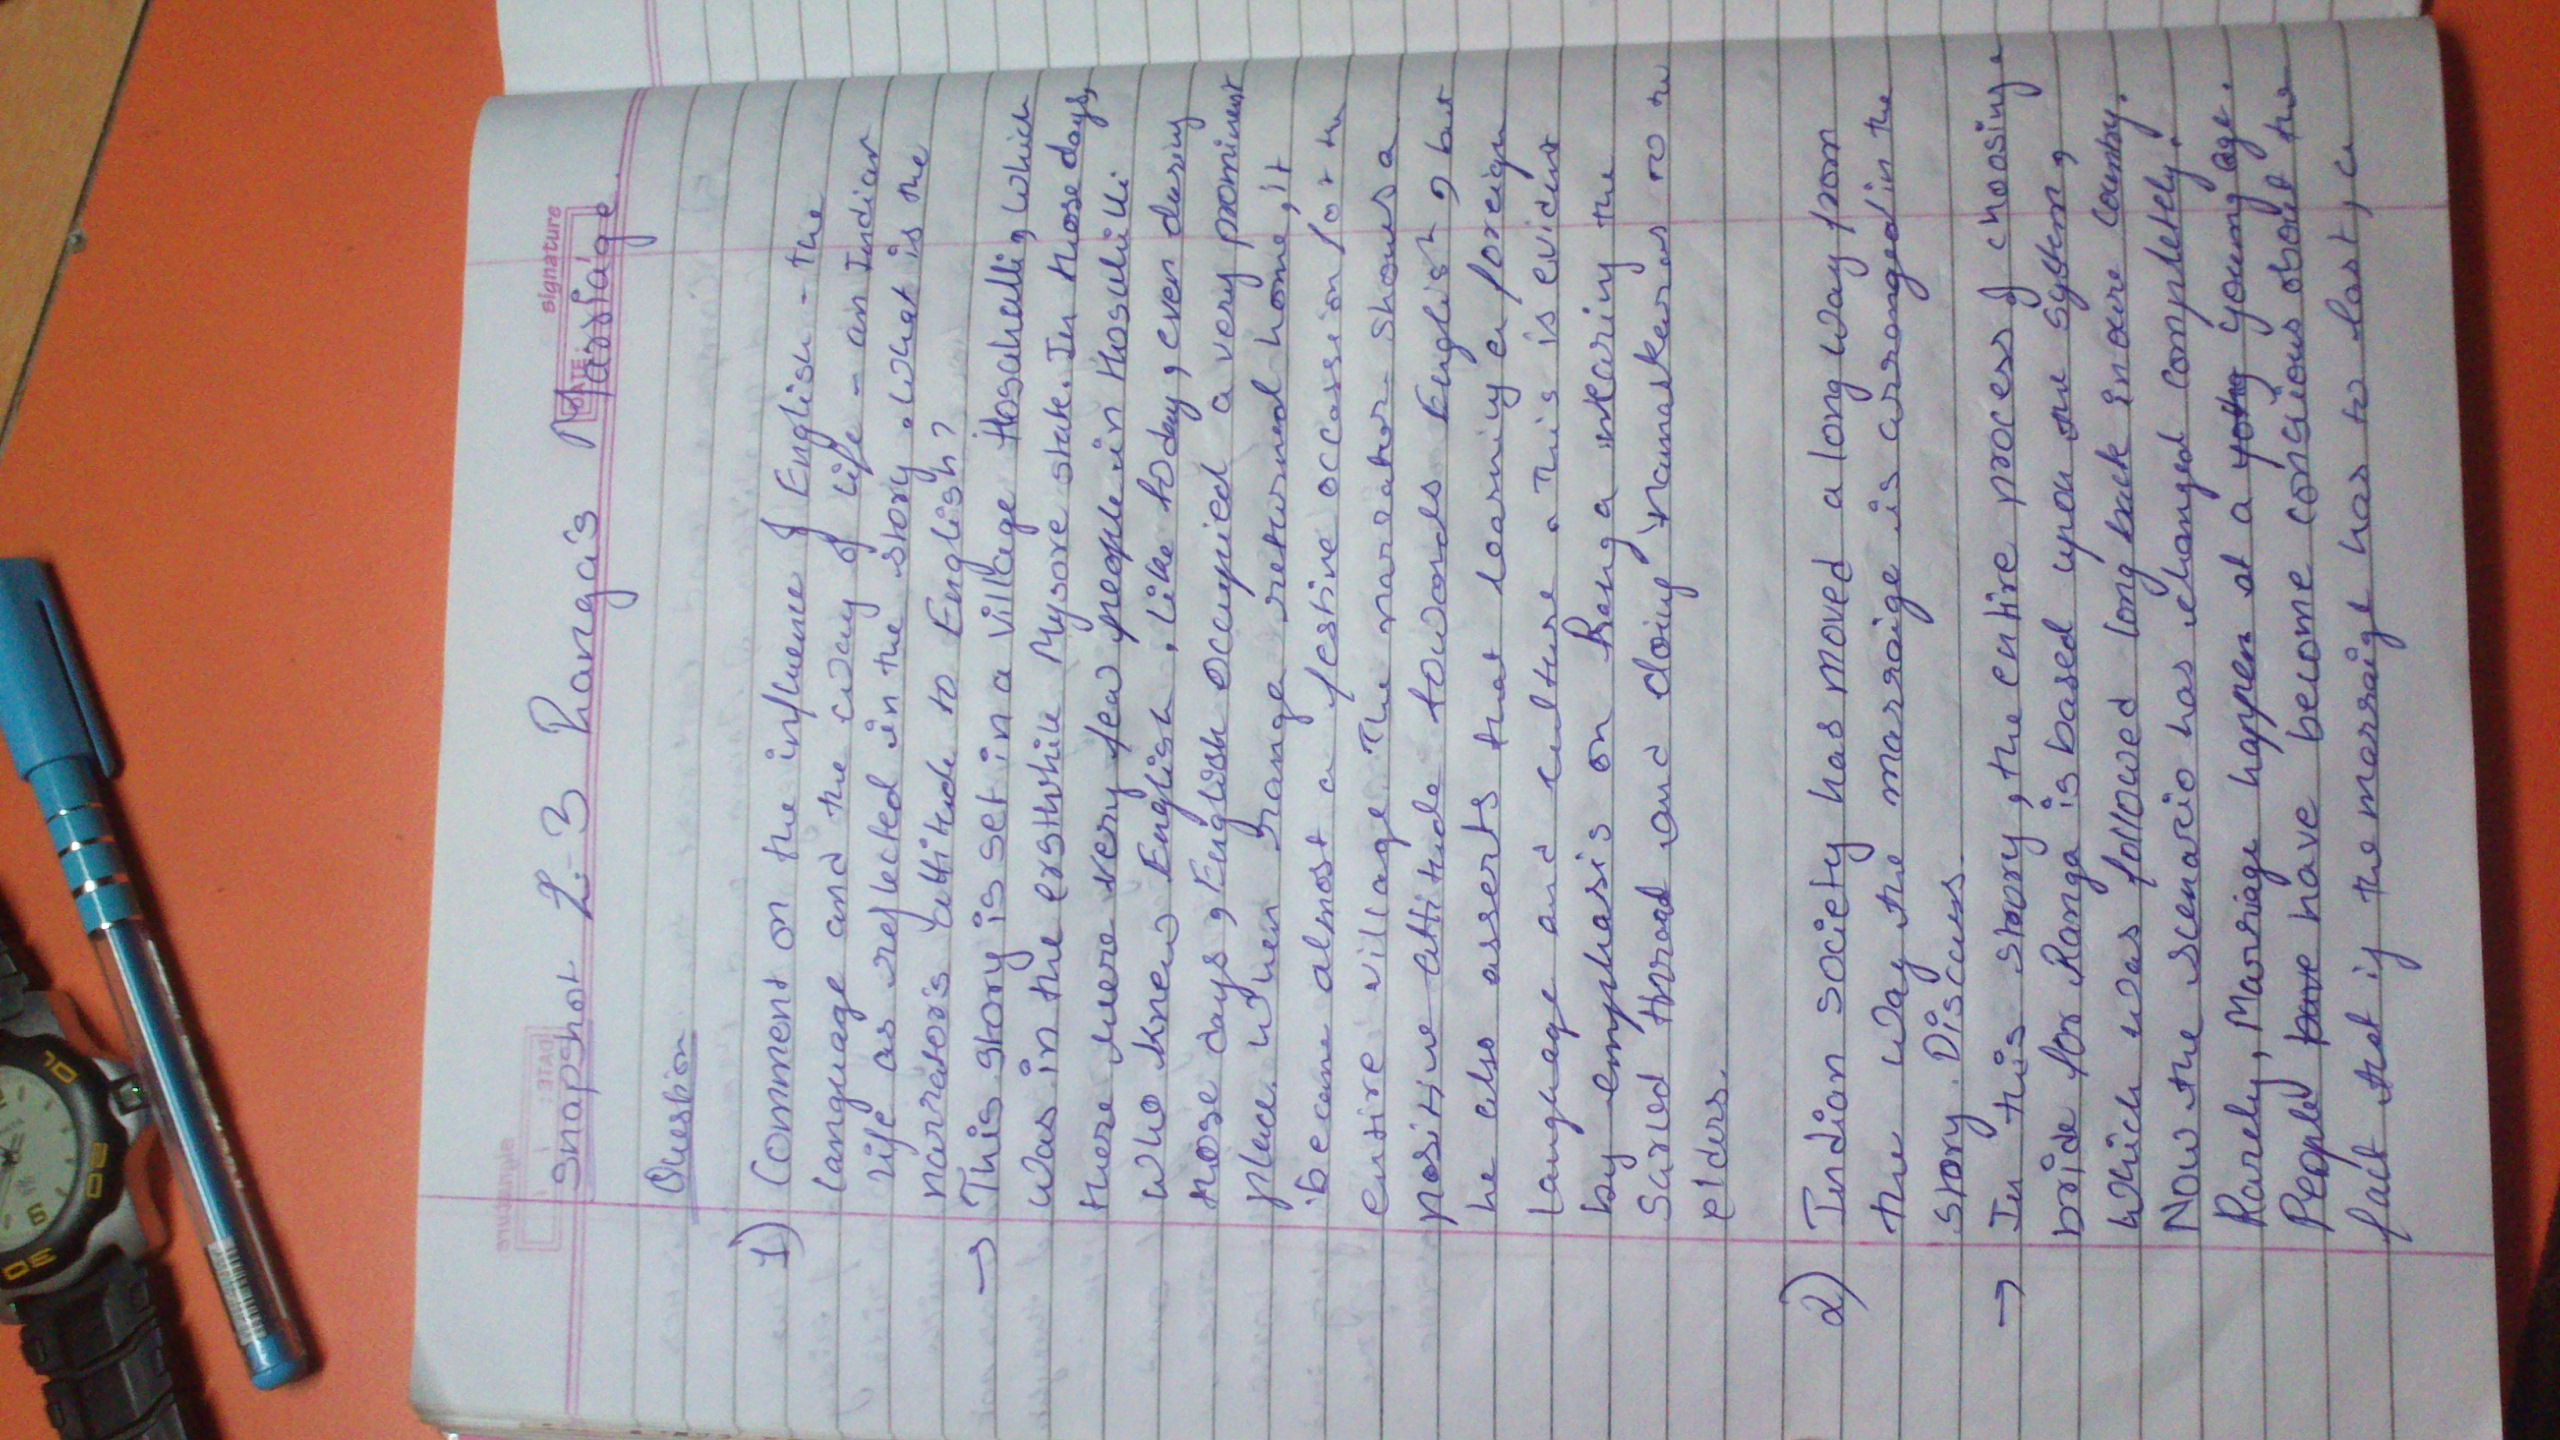 signature
DATE:
Snapshot L-3 Ranga's Marriage.
Question
1) Comment on the influence of English - the
language and the way of life - on Indian
life as reflected in the story. What is the
narrator's attitude to English?
→ This story is set in a village Hosahalli, which
was in the erstwhile Mysore state. In those days,
there were very few people in Hosahalli
who knew English, like today, even during
those days, English occupied a very prominent
place. When ranga returned home, it
became almost a festive occassion for the
entire village. The narrator shows a
positive attitude towards English, but
he also asserts that learning a foreign
language and culture. This is evident
by emphasis on Ranga wearing the
sacred thread and doing namaskaras to the
elders.
2) Indian society has moved a long way from
the way the marraige is arranged in the
story. Discuss.
→ In this stoory, the entire process of choosing a
bride for Ranga is based upon the system,
which was followed long back in our country.
Now the scenario has changed completely.
Rarely, Marriage happen at a young age.
People have become conscious about the
fact that if the marraige has to last, a